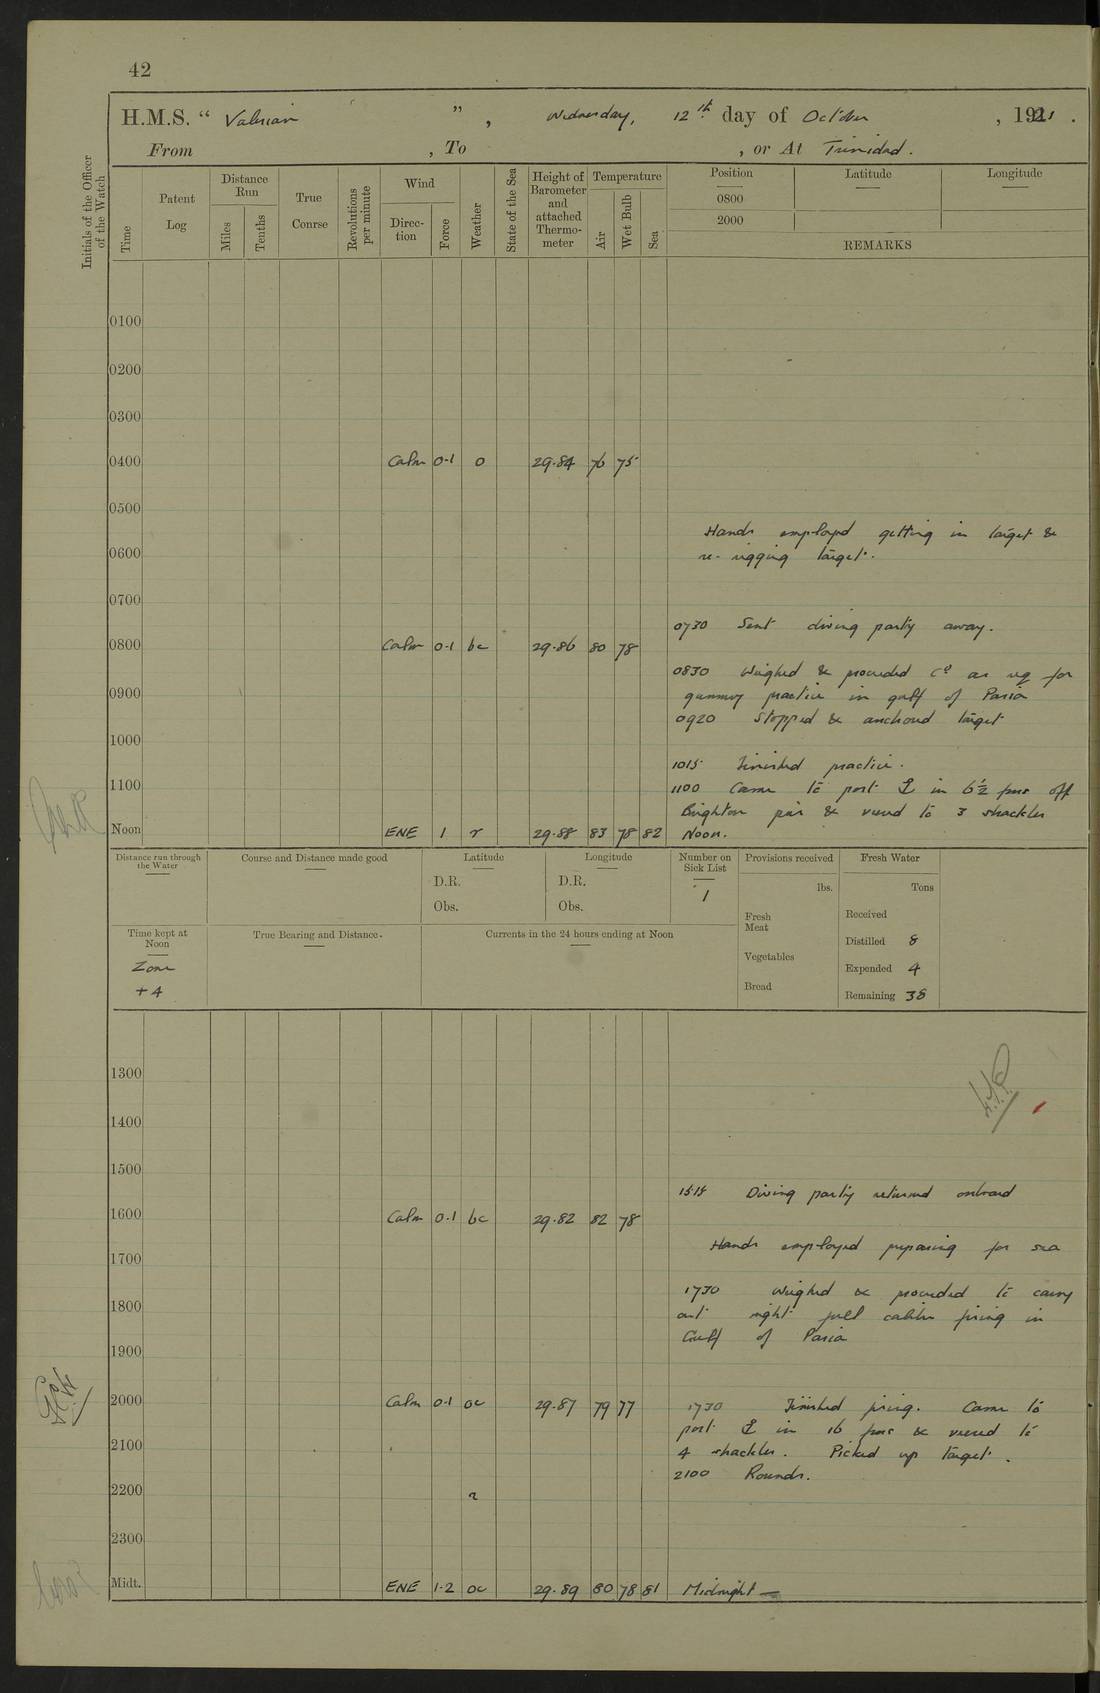 42
H.M.S. “ Valerian ” , Wednesday, 12th day of October , 1921 .
From , To , or At Trinidad.
Initials of the Officer of the Watch
Time
Patent Log
Distance Run
Miles
Tenths
True Course
Revolutions per minute
Wind
Direction
Force
Weather
State of the Sea
Height of Barometer and attached Thermometer
Temperature
Air
Wet Bulb
Sea
Position
Latitude
Longitude
0800
2000
REMARKS
0100
0200
0300
0400 Calm 0-1 o 29.84 76 75
0500
Hands employed getting in target &
0600 re-rigging target.
0700
0730 Sent diving party away.
0800 Calm 0-1 bc 29.86 80 78
0830 Weighed & proceeded Co as req for
0900 gunnery practice in gulf of Paria
0920 Stopped & anchored target
1000
1015 Finished practice.
1100 1100 Came to port ⚓ in 6½ fms off
Brighton pier & veered to 3 shackles
Noon ENE 1 r 29.88 83 78 82 Noon.
Distance run through the Water
Course and Distance made good
Latitude
D.R.
Obs.
Longitude
D.R.
Obs.
Number on Sick List
1
Provisions received
lbs.
Fresh Meat
Vegetables
Bread
Fresh Water
Tons
Received
Distilled 8
Expended 4
Remaining 38
Time kept at Noon
Zone
+ 4
True Bearing and Distance.
Currents in the 24 hours ending at Noon
1300
1400
1500
1515 Diving party returned onboard
1600 Calm 0-1 bc 29.82 82 78
Hands employed preparing for sea
1700
1730 Weighed & proceeded to carry
1800 out night full calibre firing in
Gulf of Paria
1900
2000 Calm 0-1 oc 29.87 79 77 1730 Finished firing. Came to
port ⚓ in 16 fms & veered to
2100 4 shackles. Picked up target.
2100 Rounds.
2200 r
2300
Midt. ENE 1-2 oc 29.89 80 78 81 Midnight —